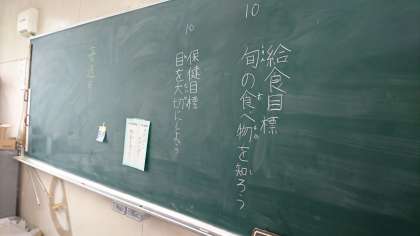 10
給食目標
旬の食べ物を知ろう
10
保健目標
目を大切にしよう